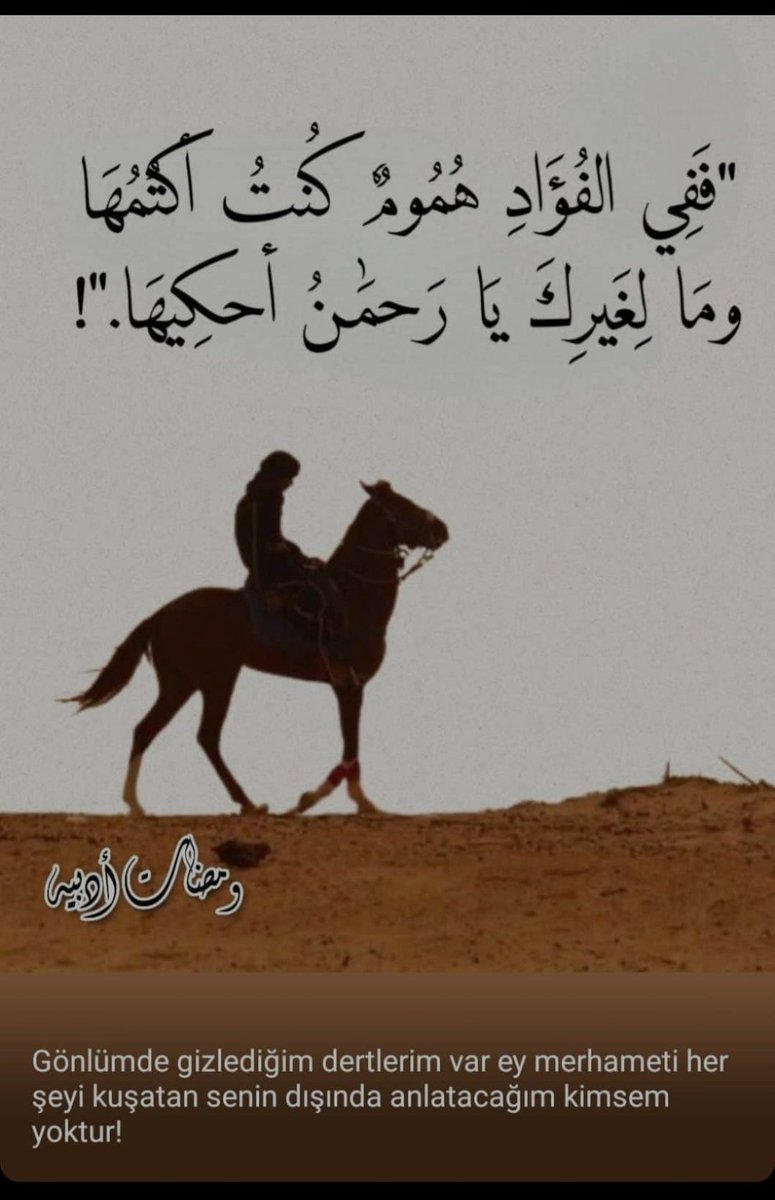 "فَفِي الفُؤَادِ هُمُومٌ كُنتُ أكتُمُهَا
ومَا لِغَيرِكَ يَا رَحمَٰنُ أحكِيهَا."!
ومضات أدبيه
Gönlümde gizlediğim dertlerim var ey merhameti her
şeyi kuşatan senin dışında anlatacağım kimsem
yoktur!